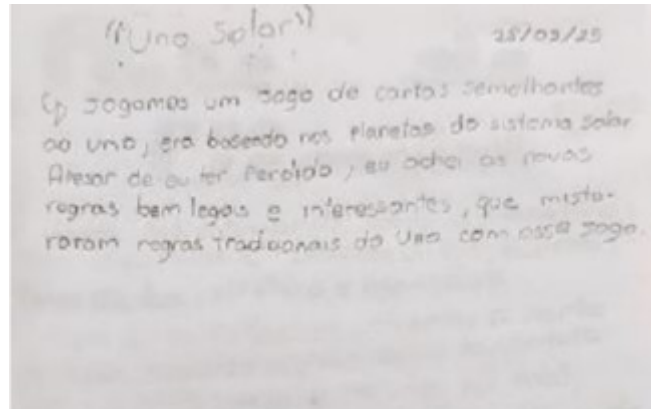 "Uno Solar" 28/03/25
↳ Jogamos um jogo de cartas semelhantes
ao uno, era baseado nos Planetas do sistema solar
Apesar de eu ter Perdido, eu achei as novas
regras bem legais e interessantes, que mistu-
raram regras tradicionais do Uno com esse jogo.